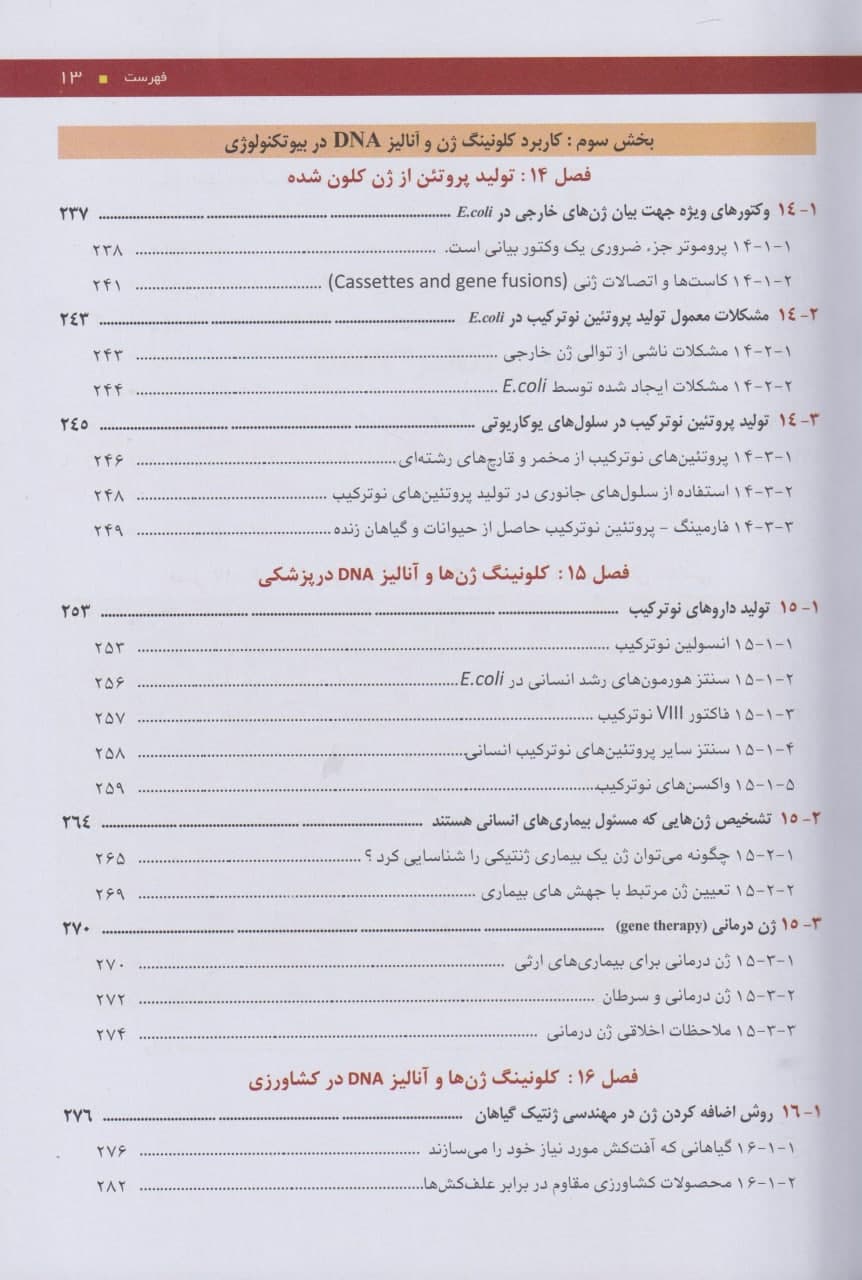 فهرست ■ ۱۳
بخش سوم : کاربرد کلونینگ ژن و آنالیز DNA در بیوتکنولوژی
فصل ۱۴ : تولید پروتئن از ژن کلون شده
۱۴-۱ وکتورهای ویژه جهت بیان ژن‌های خارجی در E.coli ........ ۲۳۷
۱۴-۱-۱ پروموتر جزء ضروری یک وکتور بیانی است. ........ ۲۳۸
۱۴-۱-۲ کاست‌ها و اتصالات ژنی (Cassettes and gene fusions) ........ ۲۴۱
۱۴-۲ مشکلات معمول تولید پروتئین نوترکیب در E.coli ........ ۲۴۳
۱۴-۲-۱ مشکلات ناشی از توالی ژن خارجی ........ ۲۴۳
۱۴-۲-۲ مشکلات ایجاد شده توسط E.coli ........ ۲۴۴
۱۴-۳ تولید پروتئین نوترکیب در سلول‌های یوکاریوتی ........ ۲۴۵
۱۴-۳-۱ پروتئین‌های نوترکیب از مخمر و قارچ‌های رشته‌ای ........ ۲۴۶
۱۴-۳-۲ استفاده از سلول‌های جانوری در تولید پروتئین‌های نوترکیب ........ ۲۴۸
۱۴-۳-۳ فارمینگ - پروتئین نوترکیب حاصل از حیوانات و گیاهان زنده ........ ۲۴۹
فصل ۱۵ : کلونینگ ژن‌ها و آنالیز DNA در پزشکی
۱۵-۱ تولید داروهای نوترکیب ........ ۲۵۳
۱۵-۱-۱ انسولین نوترکیب ........ ۲۵۳
۱۵-۱-۲ سنتز هورمون‌های رشد انسانی در E.coli ........ ۲۵۶
۱۵-۱-۳ فاکتور VIII نوترکیب ........ ۲۵۷
۱۵-۱-۴ سنتز سایر پروتئین‌های نوترکیب انسانی ........ ۲۵۸
۱۵-۱-۵ واکسن‌های نوترکیب ........ ۲۵۹
۱۵-۲ تشخیص ژن‌هایی که مسئول بیماری‌های انسانی هستند ........ ۲۶۴
۱۵-۲-۱ چگونه می‌توان ژن یک بیماری ژنتیکی را شناسایی کرد ؟ ........ ۲۶۵
۱۵-۲-۲ تعیین ژن مرتبط با جهش های بیماری ........ ۲۶۹
۱۵-۳ ژن درمانی (gene therapy) ........ ۲۷۰
۱۵-۳-۱ ژن درمانی برای بیماری‌های ارثی ........ ۲۷۰
۱۵-۳-۲ ژن درمانی و سرطان ........ ۲۷۲
۱۵-۳-۳ ملاحظات اخلاقی ژن درمانی ........ ۲۷۴
فصل ۱۶ : کلونینگ ژن‌ها و آنالیز DNA در کشاورزی
۱۶-۱ روش اضافه کردن ژن در مهندسی ژنتیک گیاهان ........ ۲۷۶
۱۶-۱-۱ گیاهانی که آفت‌کش مورد نیاز خود را می‌سازند ........ ۲۷۶
۱۶-۱-۲ محصولات کشاورزی مقاوم در برابر علف‌کش‌ها ........ ۲۸۲